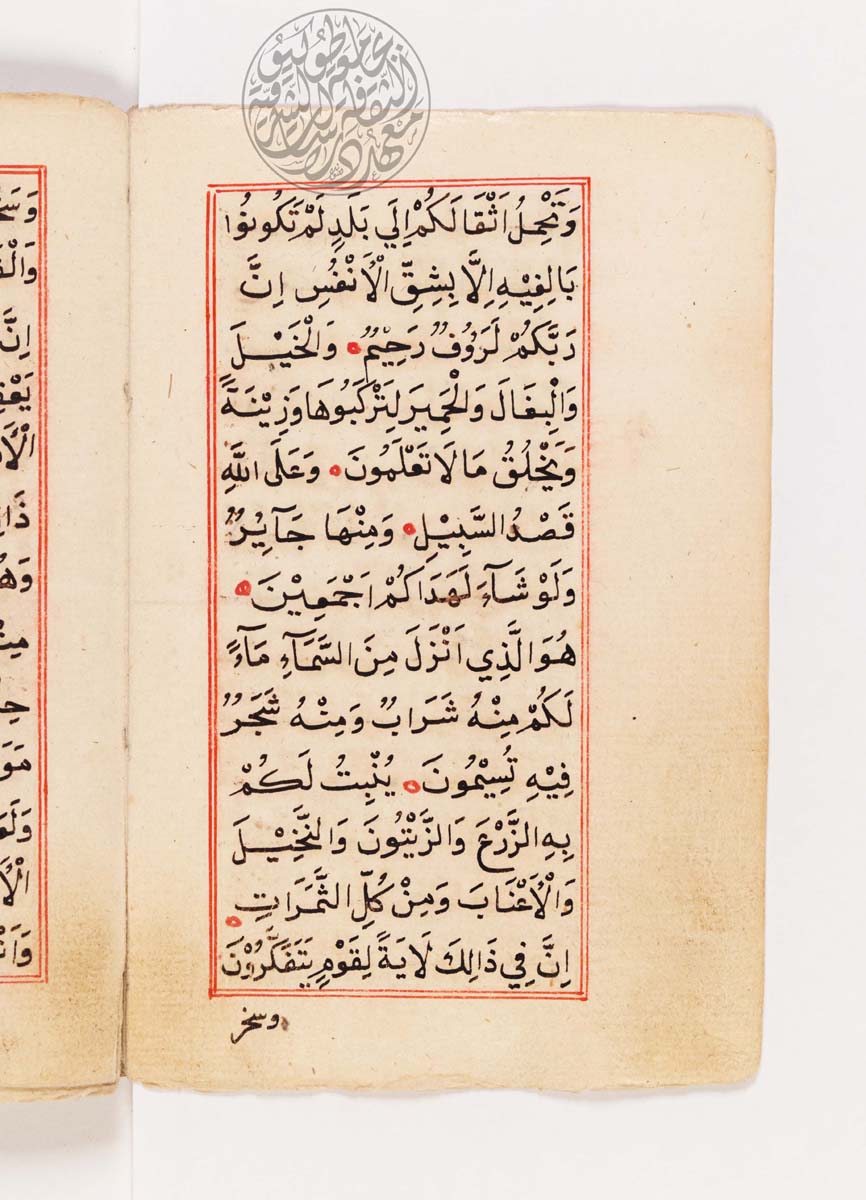 وَتَحْمِلُ اَثْقَالَكُمْ اِلَي بَلَدٍ لَمْ تَكُونُوا
بَالِغِيْهِ اِلَّا بِشِقِّ الْاَنْفُسِ اِنَّ
رَبَّكُمْ لَرَؤُوفٌ رَحِيْمٌ وَالْخَيْلَ
وَالْبِغَالَ وَالْحَمِيرَ لِتَرْكَبُوهَا وَزِيْنَةً
وَيَخْلُقُ مَا لَا تَعْلَمُونَ وَعَلَى اللّٰهِ
قَصْدُ السَّبِيْلِ وَمِنْهَا جَآئِرٌ
وَلَوْ شَآءَ لَهَدَاكُمْ اَجْمَعِيْنَ
هُوَ الَّذِي اَنْزَلَ مِنَ السَّمَآءِ مَآءً
لَكُمْ مِنْهُ شَرَابٌ وَمِنْهُ شَجَرٌ
فِيْهِ تُسِيْمُونَ يُنْبِتُ لَكُمْ
بِهِ الزَّرْعَ وَالزَّيْتُونَ وَالنَّخِيْلَ
وَالْاَعْنَابَ وَمِنْ كُلِّ الثَّمَرَاتِ
اِنَّ فِي ذَالِكَ لَايَةً لِقَوْمٍ يَتَفَكَّرُوْنَ
وسخر